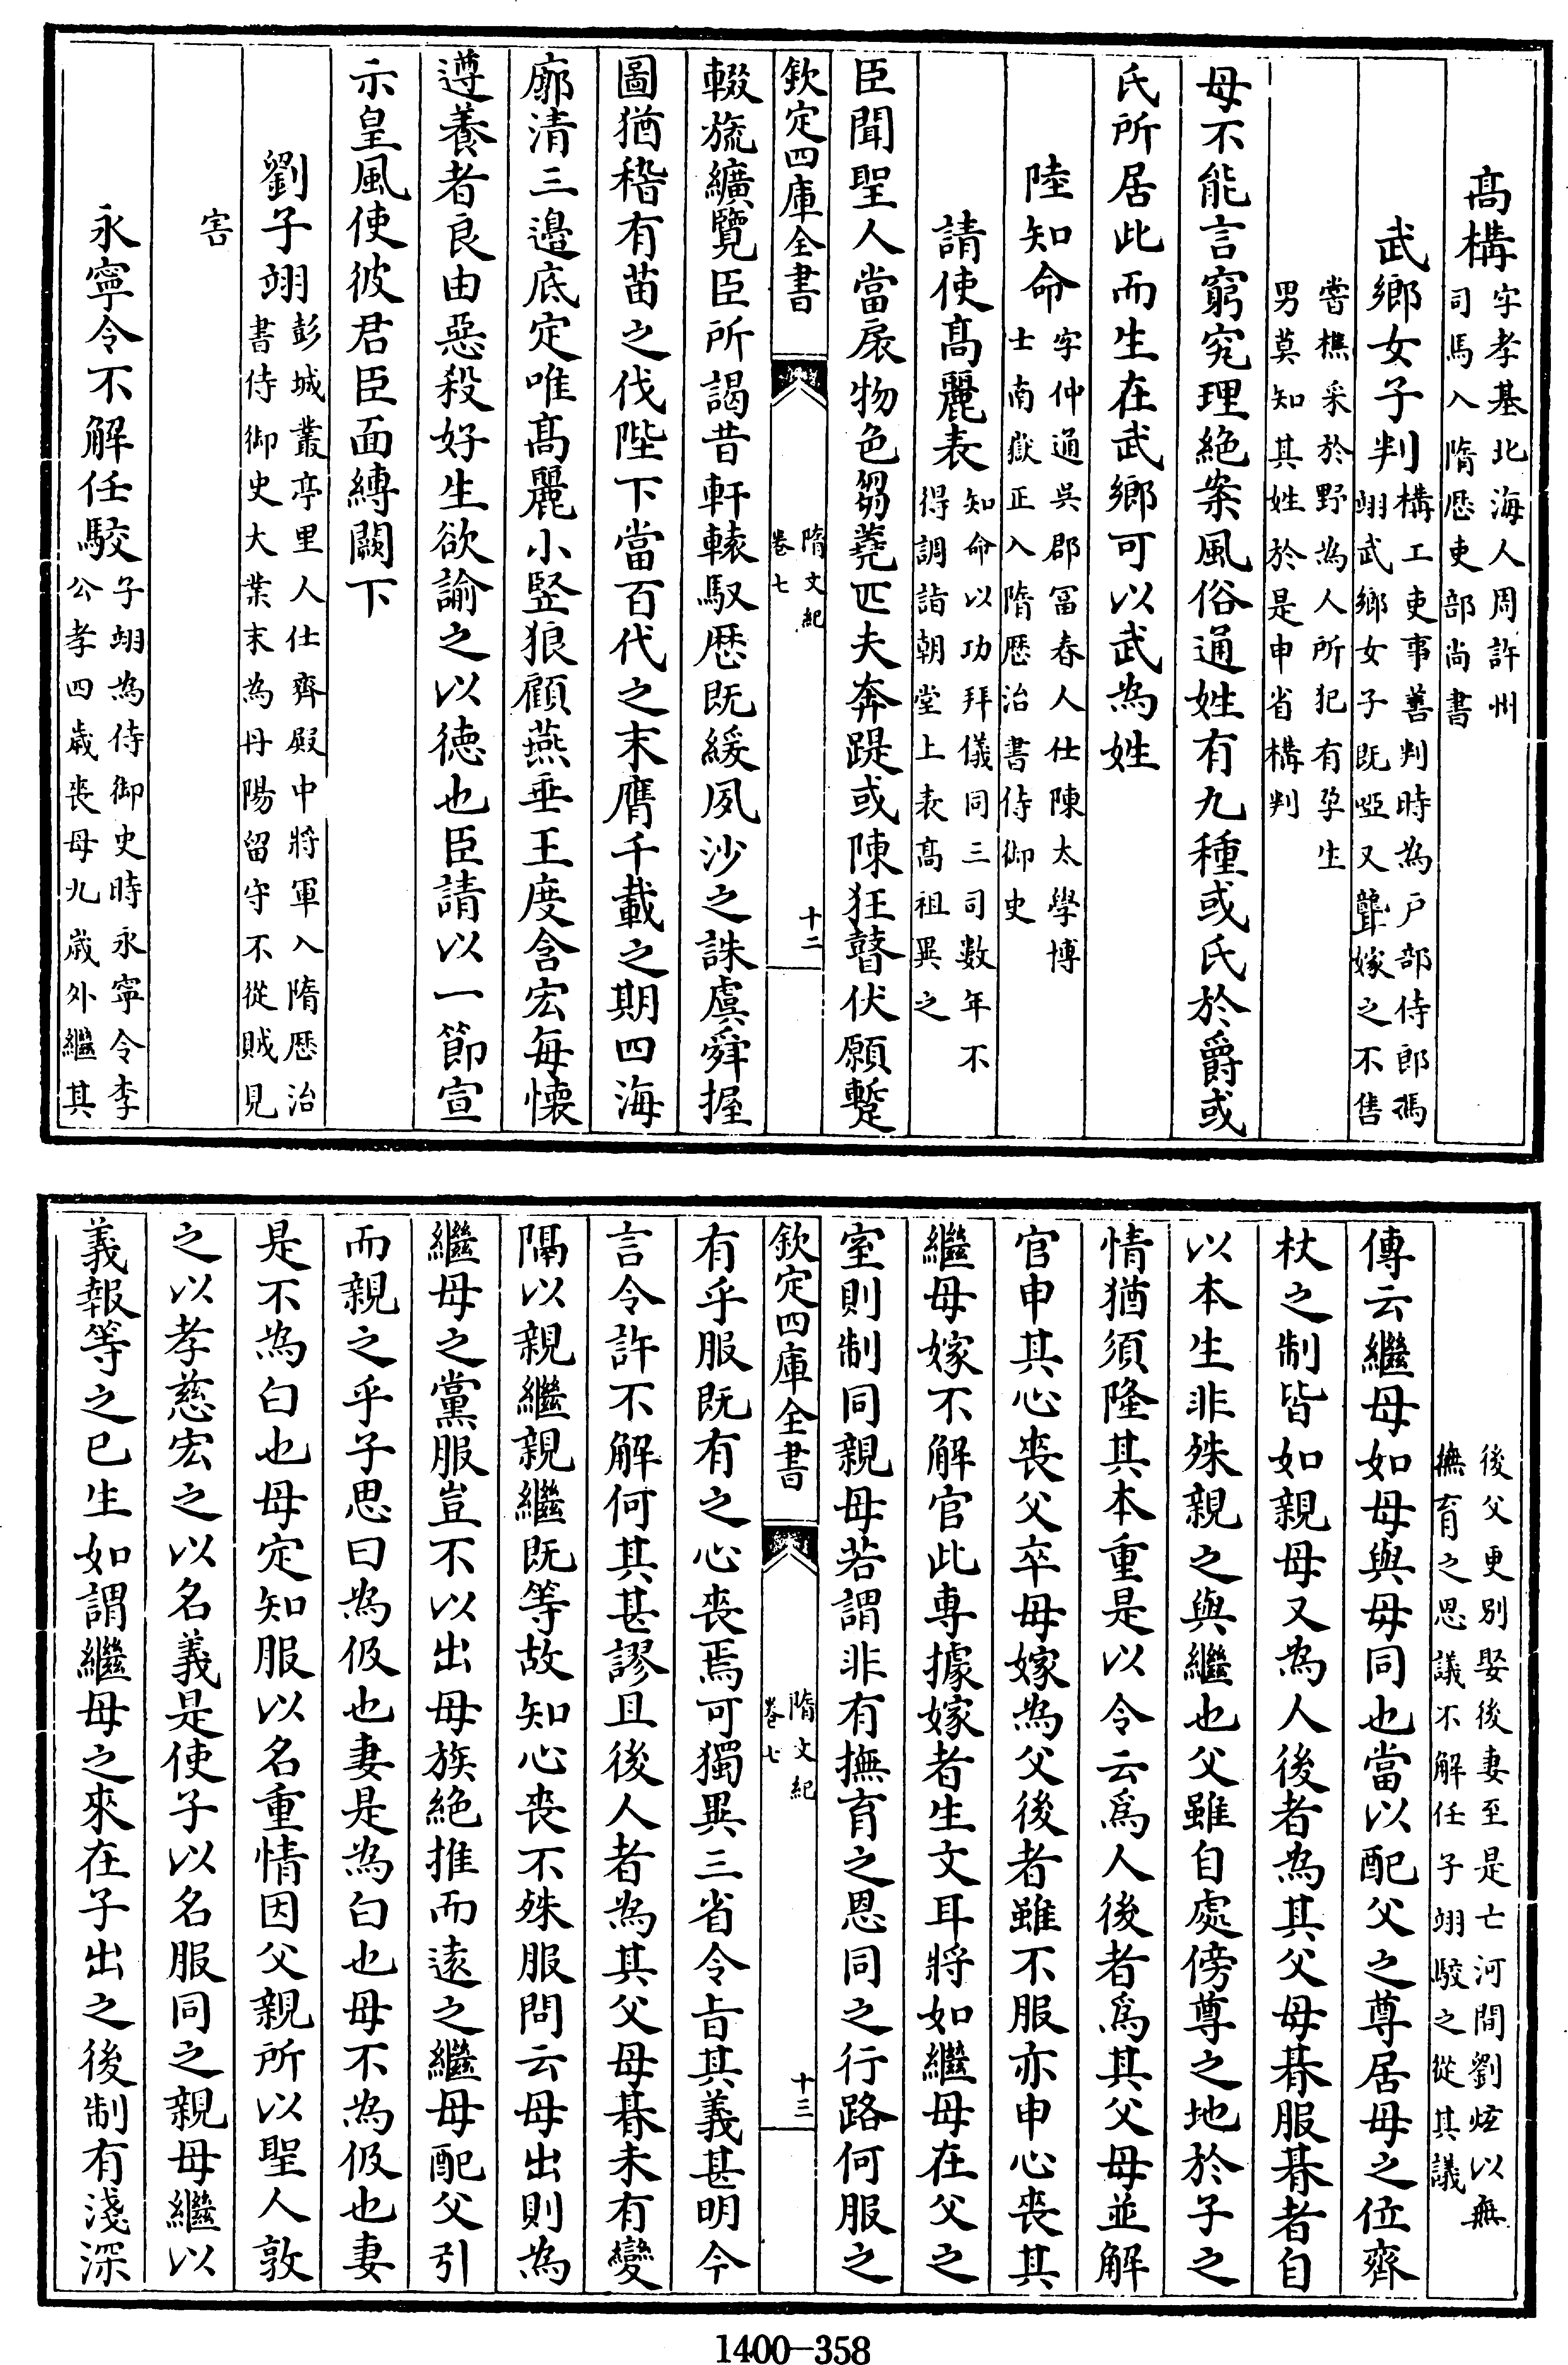 髙構字孝基北海人周許州
司馬入隋歴吏部尚書
武鄉女子判構工吏事善判時為戸部侍郎馮
翊武鄉女子既啞又聾嫁之不售
嘗樵采於野為人所犯有孕生
男莫知其姓於是申省構判
母不能言窮究理絶案風俗通姓有九種或氏於爵或
氏所居此而生在武鄉可以武為姓
陸知命字仲通吳郡冨春人仕陳太學博
士南嶽正入隋歴治書侍御史
請使髙麗表知命以功拜儀同三司数年不
得調詣朝堂上表髙祖異之
臣聞聖人當扆物色芻蕘匹夫奔踶或陳狂瞽伏願蹔
欽定四庫全書
隋文紀
卷七
十二
輟旒纊覽臣所謁昔軒轅馭歴既緩夙沙之誅虞舜握
圖猶稽有苗之伐陛下當百代之末膺千載之期四海
廓清三邉底定唯髙麗小竪狼顧燕垂王度含宏每懐
遵養者良由惡殺好生欲諭之以德也臣請以一節宣
示皇風使彼君臣面縳闕下
劉子翊彭城叢亭里人仕齊殿中將軍入隋歴治
書侍御史大業末為丹陽留守不從賊見
害
永寧令不解任駮子翊為侍御史時永寧令李
公孝四歳丧母九歳外繼其
後父更别娶後妻至是亡河間劉炫以無
撫育之恩議不解任子翊駮之從其議
傳云繼母如母與母同也當以配父之尊居母之位齊
杖之制皆如親母又為人後者為其父母朞服朞者自
以本生非殊親之與繼也父雖自處傍尊之地於子之
情猶須隆其本重是以令云爲人後者爲其父母並解
官申其心丧父卒母嫁為父後者雖不服亦申心丧其
繼母嫁不解官此専據嫁者生文耳將如繼母在父之
室則制同親母若謂非有撫育之恩同之行路何服之
欽定四庫全書
隋文紀
卷七
十三
有乎服既有之心丧焉可獨異三省令㫖其義甚明今
言令許不解何其甚謬且後人者為其父母朞未有變
隔以親繼親繼既等故知心丧不殊服問云母出則為
繼母之黨服豈不以出母族絶推而逺之繼母配父引
而親之乎子思曰為伋也妻是為白也母不為伋也妻
是不為白也母定知服以名重情因父親所以聖人敦
之以孝慈宏之以名義是使子以名服同之親母繼以
義報等之已生如謂繼母之來在子出之後制有淺深
1400—358